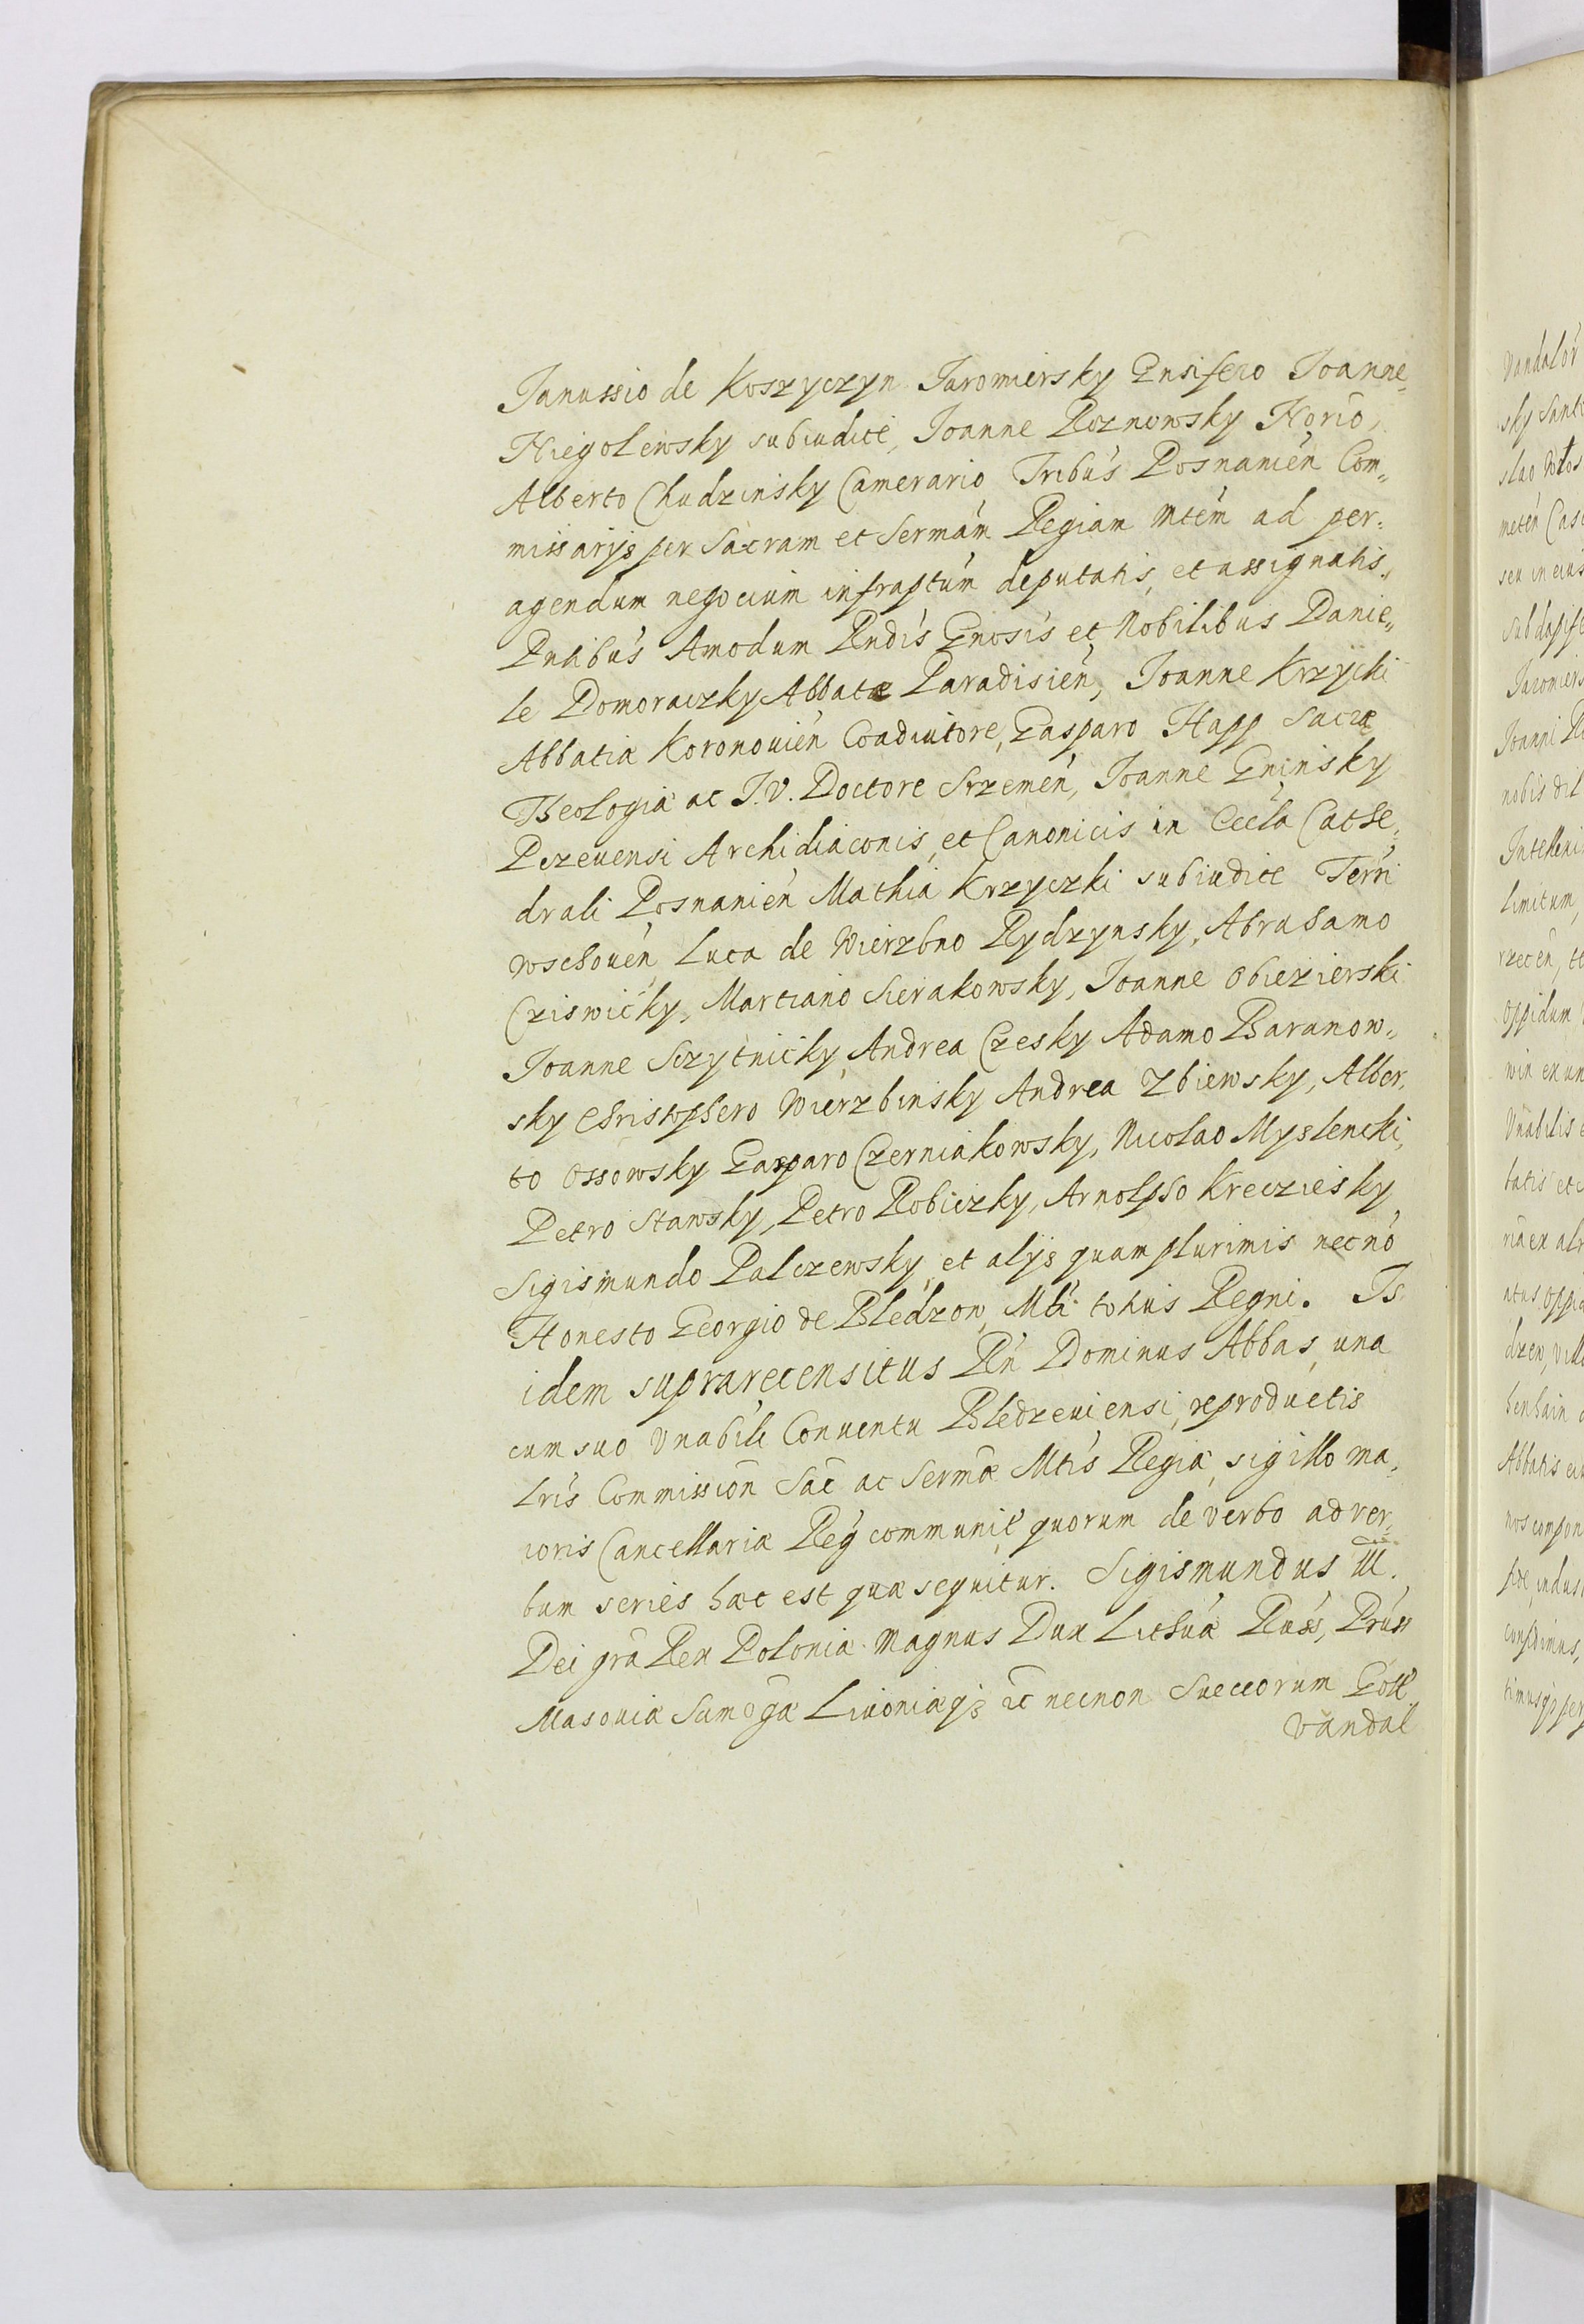 Janussio de Koszyczyn Jaromiersky Ensifero Joanne
Niegolewsky subiudice, Joanne Roznowsky Norio,
Alberto Chudzinsky Camerario Tribus Posnanien Com„
missarijs per Sacram et Sermam Regiam Mtem ad per„
agendum negocium infraptum deputatis, et assignatis.
Pntibus Amodum Rndis Gnosis et Nobilibus Danie„
le Domoraczky Abbate Paradisien, Joanne Krzycki
Abbatiæ Koronouien Coadiutore, Gasparo Happ Sacræ
Theologiæ ac J.V. Doctore Srzemen, Joanne Gninsky
Pczeuensi Archidiaconis, et Canonicis in Eccla Cathe„
drali Posnanien Mathia Krzyczki subiudice Terri
Wschouen Luca de Wierzbno Rydzynsky, Abrahamo
Cziswicky, Martiano Sierakowsky, Joanne Obiezierski
Joanne Sczytnicky, Andrea Czesky Adamo Baranow„
sky Christophero Wierzbinsky Andrea Zbiewsky, Alber„
to Ossowsky Gasparo Czerniakowsky, Nicolao Myslencki,
Petro Stawsky, Petro Robiczky, Arnolpho Krecziesky,
Sigismundo Palczewsky, et alijs quamplurimis necno
Honesto Georgio de Bledzon, Mli totius Regni. Is
idem suprarecensitus Rn Dominus Abbas, una
cum suo Vnabili Conuentu Bledzeuiensi, reproductis
Lris Commission Sac ac Sermæ Mtis Regiæ, sigillo ma„
ioris Cancellariæ Reg communit quorum de verbo ad ver„
bum series hæc est quæ sequitur. Sigismundus III.
Dei gra Rex Poloniæ Magnus Dux Lithuæ Russ, Pruss
Masouiæ Samogæ Liuoniæqз ac necnon Sueccorum Gott
Vandal